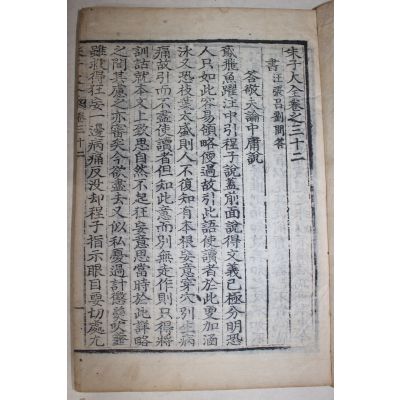 朱子大全卷之三十二
書 汪張呂劉問答
答敬夫論中庸說
鳶飛魚躍注中引程子說蓋前面說得文義已極分明恐
人只如此容易領略便過故引此語使讀者於此更加涵
泳又恐枝葉太盛則人不復知有本根妄意穿穴別生病
痛故引而不盡使讀者但知此意而別無走作則只得將
訓詁就本文上致思自然不起狂妄意思當時於此詳略
之間其慮之亦審矣今欲盡去又似私憂過計懲羹吹虀
雖救得狂妄一邊病痛反没却程子指示眼目要切處尤
朱子大全 卷三十二